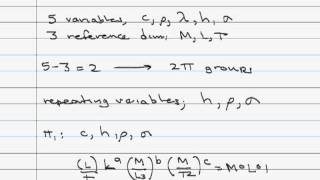 5 variables, c, ρ, λ, h, σ
3 reference dim; M, L, T
5-3=2 ⟶ 2π groups
repeating variables; h, ρ, σ
π₁: c, h, ρ, σ
(L/T) L^a (M/L3)^b (M/T2)^c = M0L0T